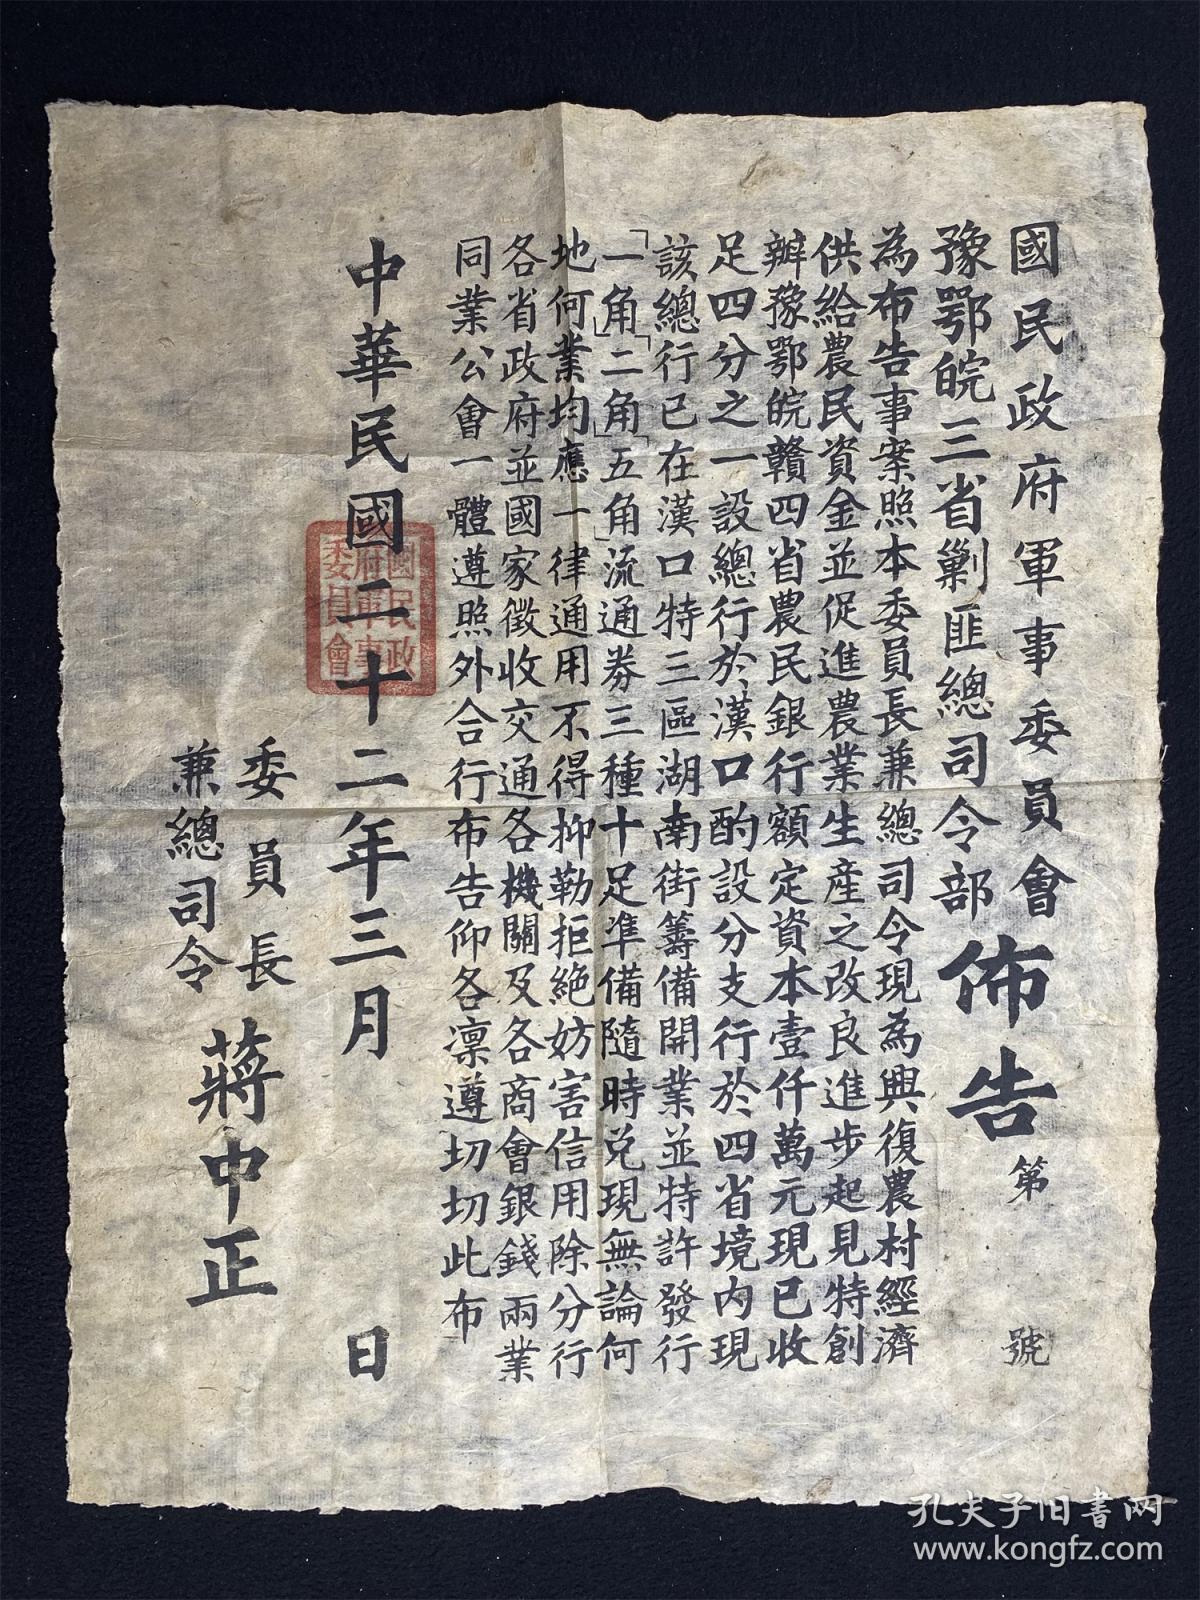 國民政府軍事委員會
豫鄂皖三省剿匪總司令部佈告
第　號
為布告事案照本委員長兼總司令現為興復農村經濟
供給農民資金並促進農業生產之改良進步起見特創
辦豫鄂皖贛四省農民銀行額定資本壹仟萬元現已收
足四分之一設總行於漢口酌設分支行於四省境內現
該總行已在漢口特三區湖南街籌備開業並特許發行
「一角」「二角」「五角」流通券三種十足準備隨時兌現無論何
地何業均應一律通用不得抑勒拒絕妨害信用除分行
各省政府並國家徵收交通各機關及各商會銀錢兩業
同業公會一體遵照外合行布告仰各凜遵切切此布
中華民國二十二年三月　日
國民政府軍事委員會
委員長
兼總司令
蔣中正
孔夫子旧书网
www.kongfz.com